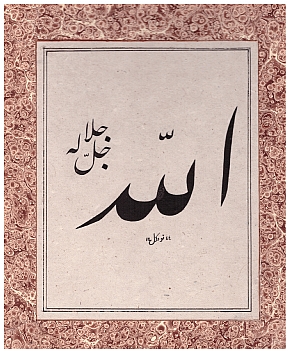 الله
جلّ جلاله